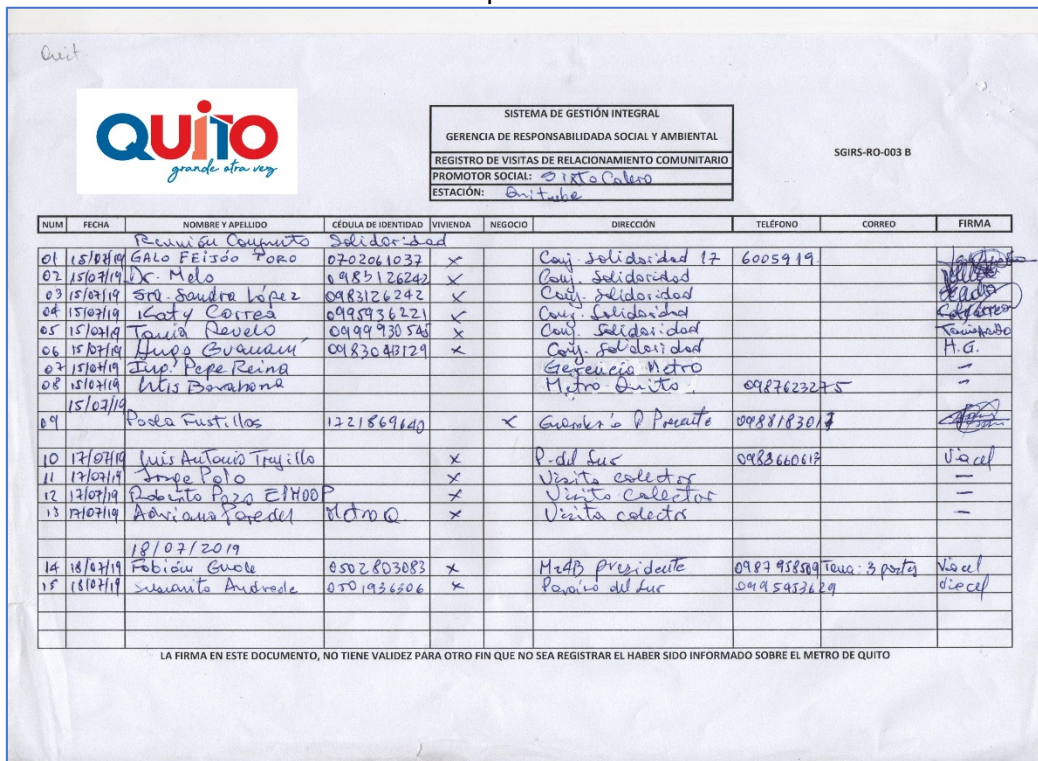 Quit
QUITO
grande otra vez
SISTEMA DE GESTIÓN INTEGRAL
GERENCIA DE RESPONSABILIDADA SOCIAL Y AMBIENTAL
REGISTRO DE VISITAS DE RELACIONAMIENTO COMUNITARIO
PROMOTOR SOCIAL: Sixto Calero
ESTACIÓN: Quitumbe
SGIRS-RO-003 B
NUM FECHA NOMBRE Y APELLIDO CÉDULA DE IDENTIDAD VIVIENDA NEGOCIO DIRECCIÓN TELÉFONO CORREO FIRMA
Reunión Conjunto Solidaridad
01 15/07/19 GALO FEIJÓO TORO 0702061037 x Conj. Solidaridad 17 6005919
02 15/07/19 Dr. Melo 0983126242 x Conj. Solidaridad
03 15/07/19 Sra. Sandra López 0983126242 x Conj. Solidaridad
04 15/07/19 Katy Correa 0995936221 x Conj. Solidaridad
05 15/07/19 Tania Revelo x Conj. Solidaridad
06 15/07/19 Hugo Guanam 0983043129 x Conj. Solidaridad H.G.
07 15/07/19 Ing. Pepe Reina Gerencia Metro -
08 15/07/19 Luis Barahona Metro Quito 0987623275 -
15/07/19
09 Paola Fustillos 1721869640 x
10 17/07/19 Luis Antonio Trujillo x P. del Sur 0983660613
11 17/07/19 Jorge Polo x Visita colector —
12 17/07/19 Roberto Pozo EPMOOP x Visita Colector —
13 17/07/19 Adriana Paredes Metro Q. x Visita colector —
18/07/2019
14 18/07/19 Fabián Guale 0502803083 x Mz4B presidente 0987958509
15 18/07/19 Susanita Andrade 0501936306 x Paraíso del Sur 0995953629
LA FIRMA EN ESTE DOCUMENTO, NO TIENE VALIDEZ PARA OTRO FIN QUE NO SEA REGISTRAR EL HABER SIDO INFORMADO SOBRE EL METRO DE QUITO